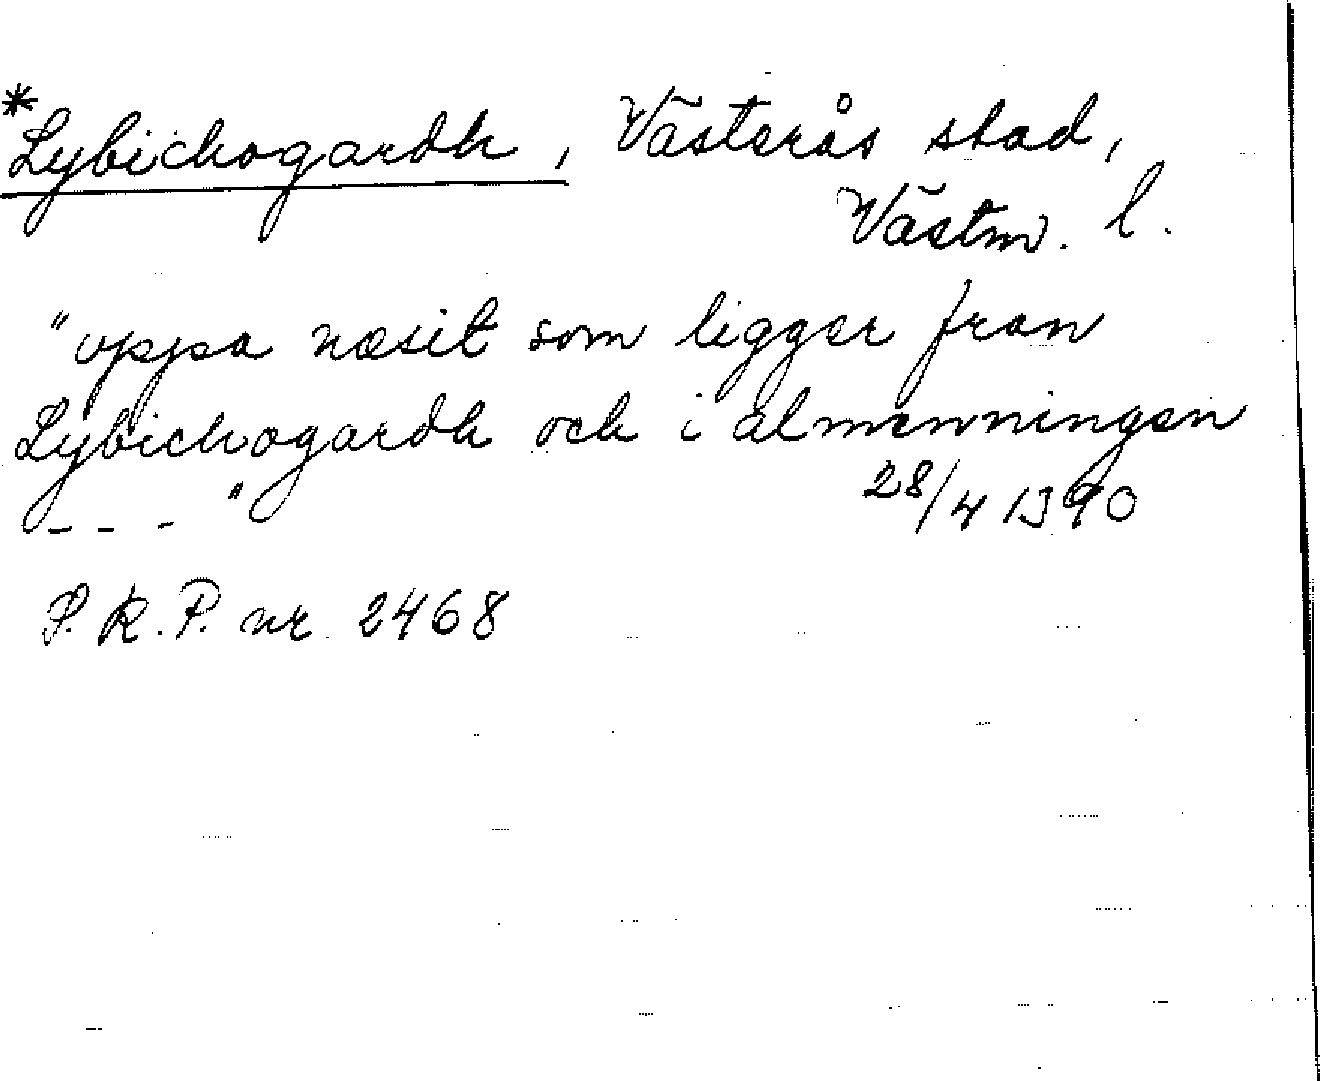 *Lybichogardh, Västerås stad,
Västm. l.
"vppa næsit som ligger fran
Lybichogardh och i almenningen
- - - " 28/4 1390
S.R.P. nr 2468